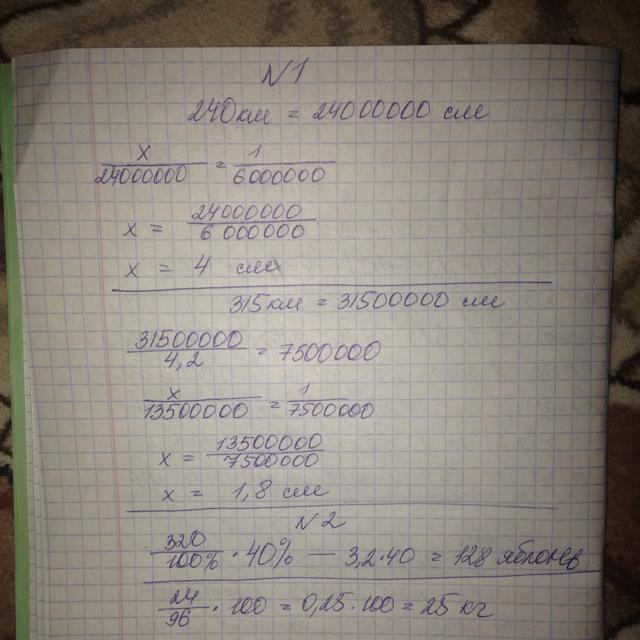 N1
240км = 24000000 см
x/24000000 = 1/6000000
x = 24000000/6000000
x = 4 см
315км = 31500000 см
31500000/4,2 = 7500000
x/13500000 = 1/7500000
x = 13500000/7500000
x = 1,8 см
N2
320/100% · 40% — 3,2·40 = 128 яблонев
24/96 · 100 = 0,25·100 = 25 кг